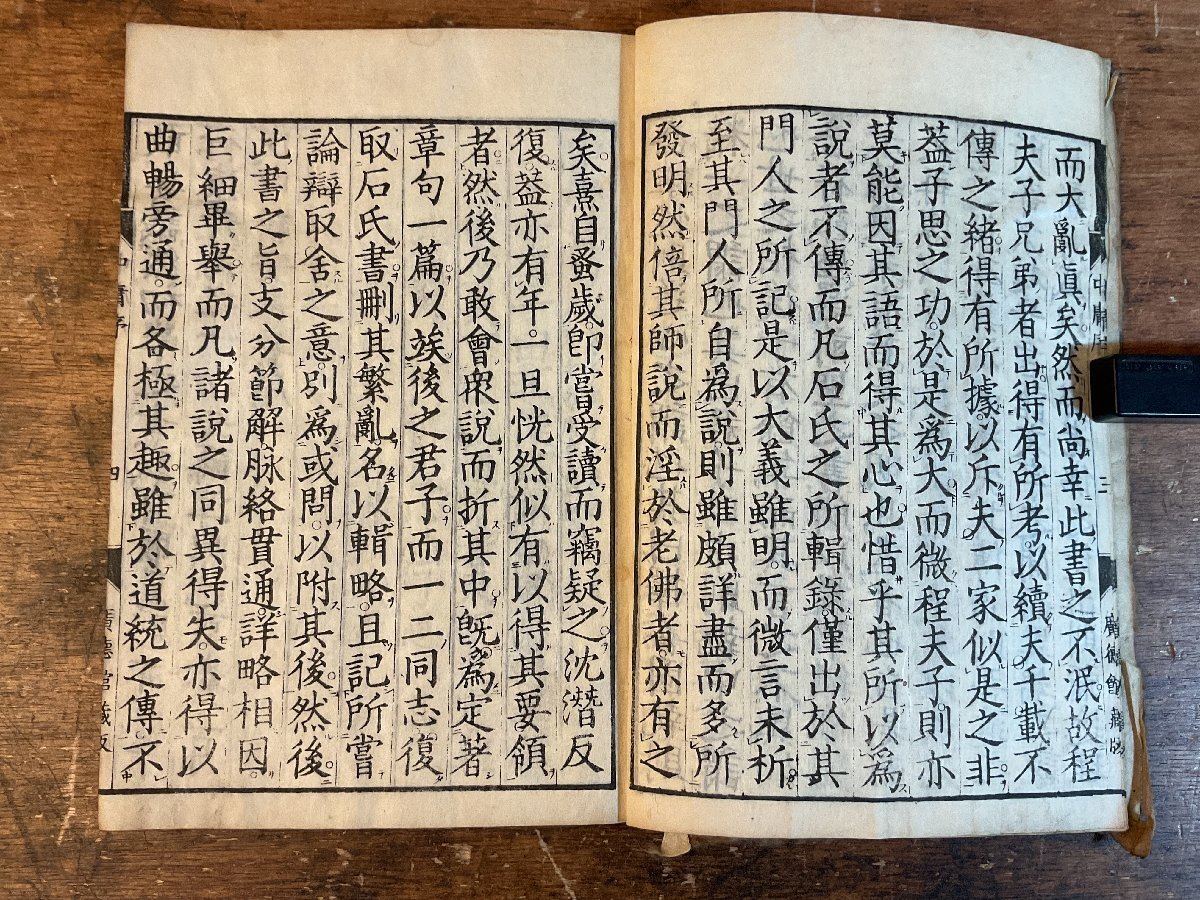 中庸序
三
廣德館藏版
而大亂眞矣然而尚幸此書之不泯故程
夫子兄弟者出得有所考以續夫千載不
傳之緒得有所據以斥夫二家似是之非
葢子思之功於是爲大而微程夫子則亦
莫能因其語而得其心也惜乎其所以爲
說者不傳而凡石氏之所輯錄僅出於其
門人之所記是以大義雖明而微言未析
至其門人所自爲說則雖頗詳盡而多所
發明然倍其師說而淫於老佛者亦有之
矣熹自蚤歲卽嘗受讀而竊疑之沈潛反
復葢亦有年一旦恍然似有以得其要領
者然後乃敢會衆說而折其中旣爲定著
章句一篇以竢後之君子而一二同志復
取石氏書刪其繁亂名以輯略且記所嘗
論辯取舍之意別爲或問以附其後然後
此書之旨支分節解脉絡貫通詳略相因
巨細畢舉而凡諸說之同異得失亦得以
曲暢旁通而各極其趣雖於道統之傳不
中庸序
四
廣德館藏版